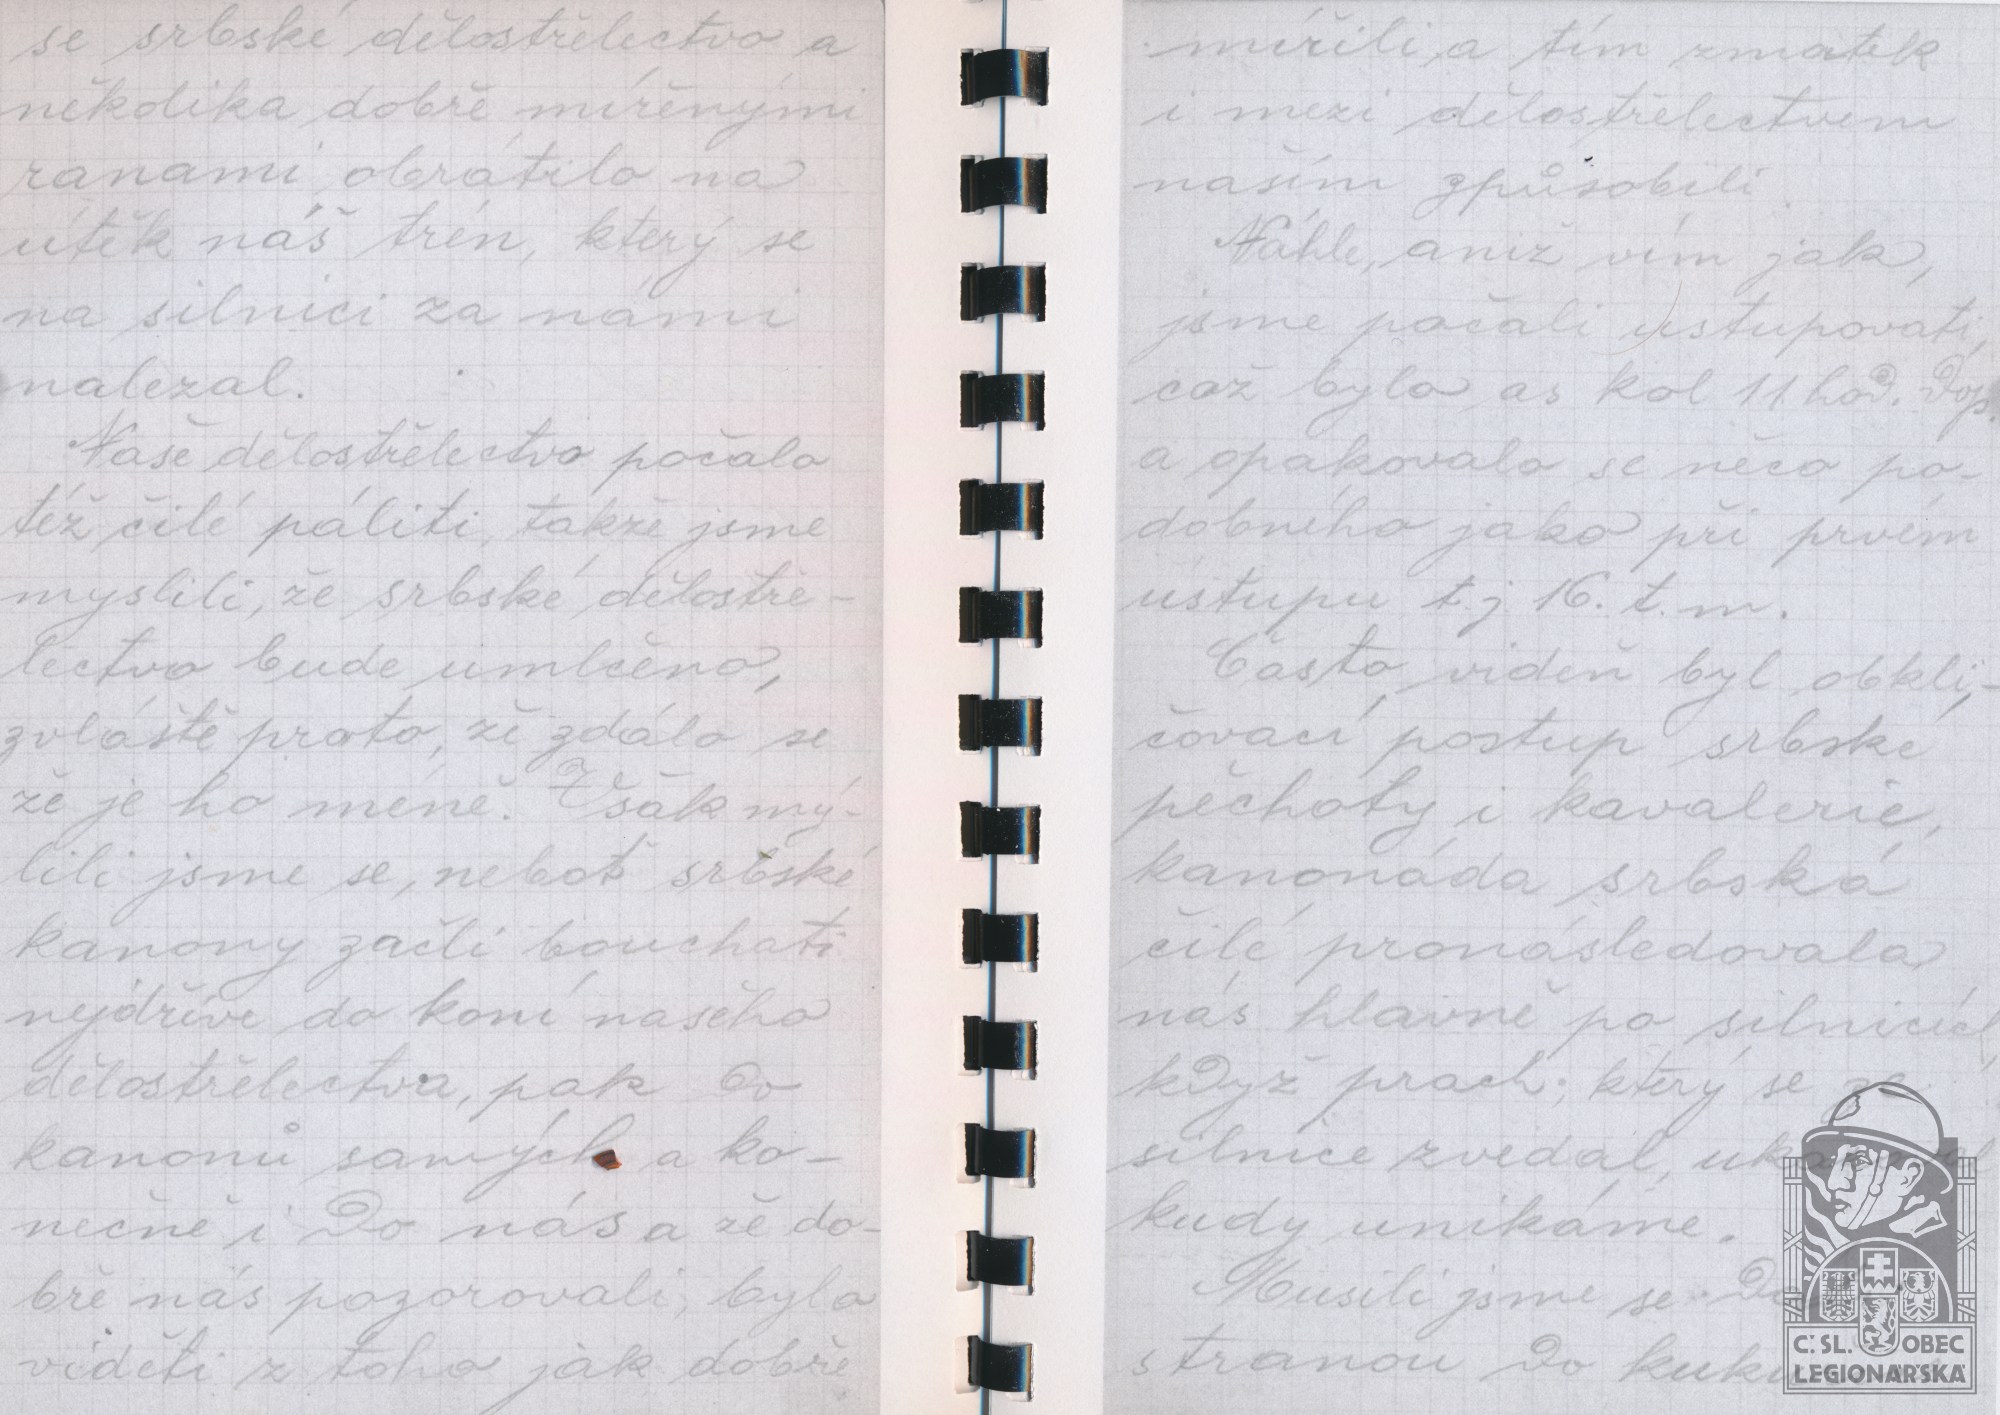 se srbské dělostřelectvo a
několika dobře mířenými
ranami obrátilo na
útěk náš trén, který se
na silnici za námi
nalezal.
Naše dělostřelectvo počalo
též čilé páliti, takže jsme
myslili, že srbské dělostře-
lectvo bude umlčeno,
zvláště proto, že zdálo se
že je ho méně. Však mý-
lili jsme se, neboť srbské
kanony začli bouchati
nejdříve do koní našeho
dělostřelectva, pak do
kanonů samých a ko-
nečně i do nás a že do-
bře nás pozorovali, bylo
viděti z toho jak dobře
mířili a tím zmatek
i mezi dělostřelectvem
naším způsobili
Náhle, aniž vím jak,
jsme počali ustupovati,
což bylo as kol 11 hod. dop.
a opakovalo se něco po-
dobného jako při prvém
ústupu t.j 16. t. m.
Často viděn byl obkli-
čovací postup srbské
pěchoty i kavalerie,
kanonáda srbská
čilé pronásledovala
nás hlavně po silnicích
když prach, který se ze
silnice zvedal, ukazoval
kudy unikáme.
Musili jsme se dát
stranou do kuku
Č. SL. OBEC
LEGIONÁŘSKÁ